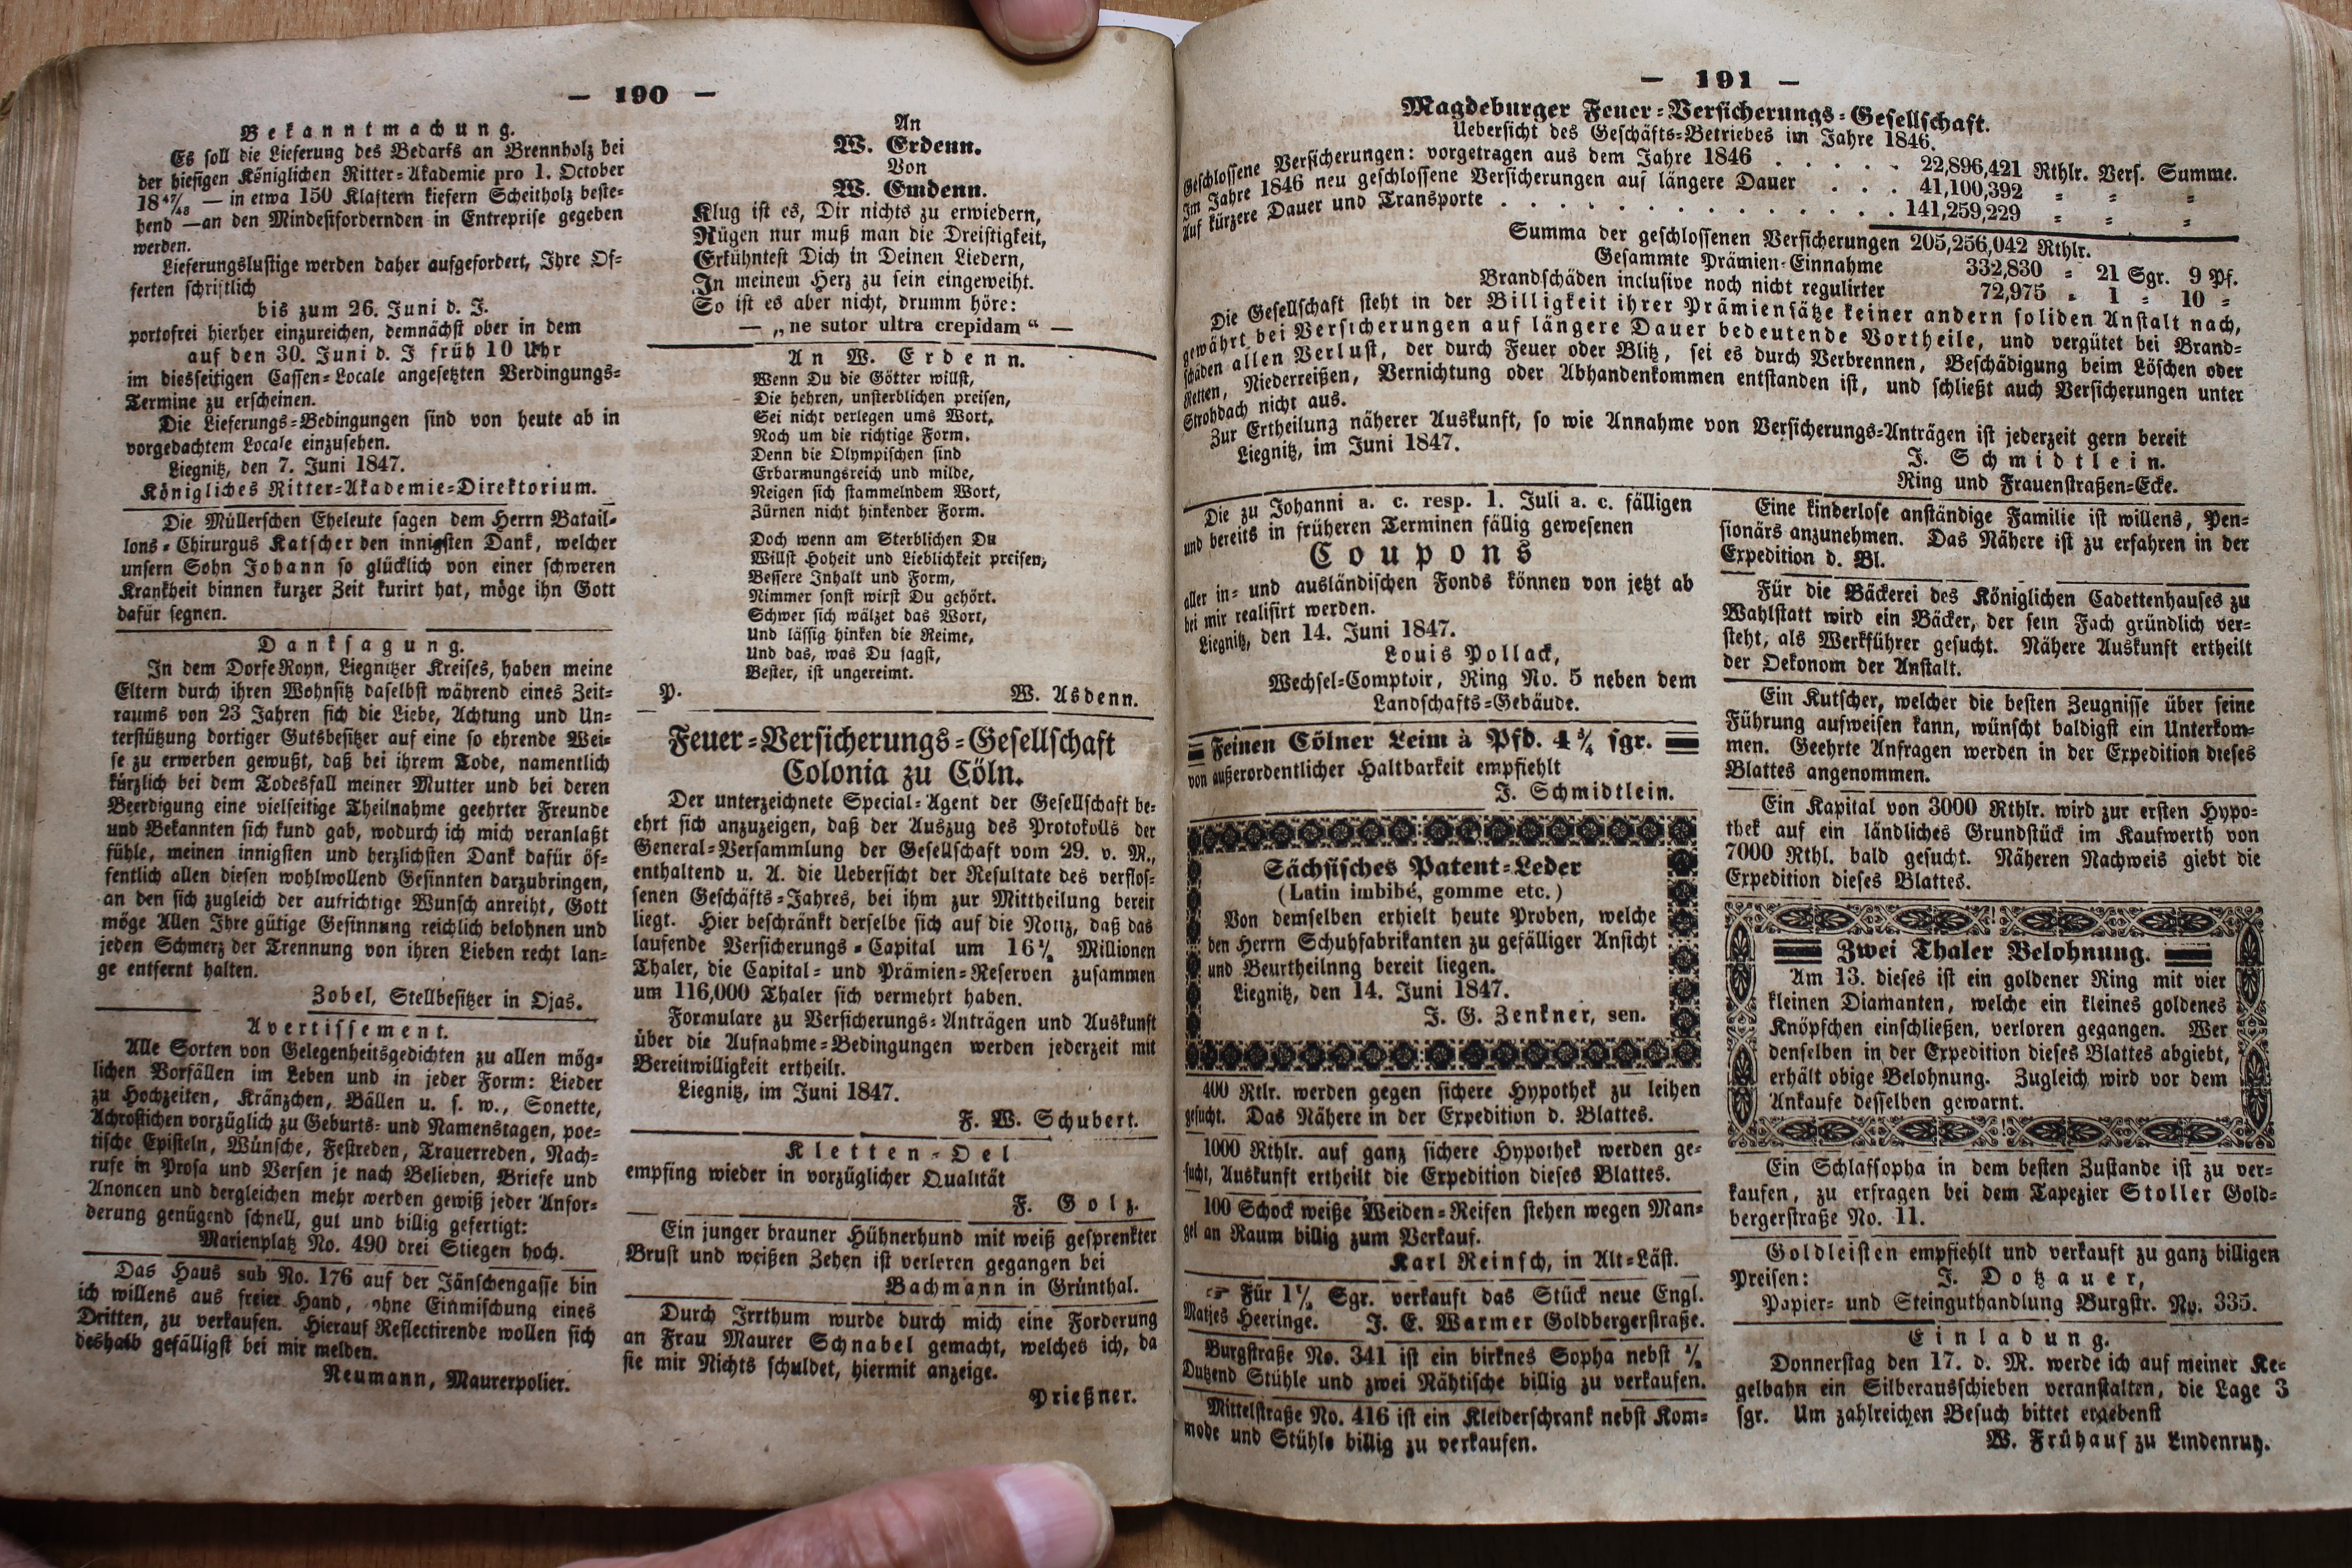 — 190 —
Bekanntmachung.
Es soll die Lieferung des Bedarfs an Brennholz bei
der hiesigen Königlichen Ritter-Akademie pro 1. October
18⁴⁷/₄₈ — in etwa 150 Klaftern kiefern Scheitholz beste-
hend —an den Mindestfordernden in Entreprise gegeben
werden.
Lieferungslustige werden daher aufgefordert, Ihre Of-
ferten schriftlich
bis zum 26. Juni d. J.
portofrei hierher einzureichen, demnächst ober in dem
auf den 30. Juni d. J früh 10 Uhr
im diesseitigen Cassen-Locale angesetzten Verdingungs-
Termine zu erscheinen.
Die Lieferungs-Bedingungen sind von heute ab in
vorgedachtem Locale einzusehen.
Liegnitz, den 7. Juni 1847.
Königliches Ritter-Akademie-Direktorium.
Die Müllerschen Eheleute sagen dem Herrn Batail-
lons-Chirurgus Katscher den innigsten Dank, welcher
unsern Sohn Johann so glücklich von einer schweren
Krankheit binnen kurzer Zeit kurirt hat, möge ihn Gott
dafür segnen.
Danksagung.
In dem Dorfe Royn, Liegnitzer Kreises, haben meine
Eltern durch ihren Wohnsitz daselbst während eines Zeit-
raums von 23 Jahren sich die Liebe, Achtung und Un-
terstützung dortiger Gutsbesitzer auf eine so ehrende Wei-
se zu erwerben gewußt, daß bei ihrem Tode, namentlich
kürzlich bei dem Todesfall meiner Mutter und bei deren
Beerdigung eine vielseitige Theilnahme geehrter Freunde
und Bekannten sich kund gab, wodurch ich mich veranlaßt
fühle, meinen innigsten und herzlichsten Dank dafür öf-
fentlich allen diesen wohlwollend Gesinnten darzubringen,
an den sich zugleich der aufrichtige Wunsch anreiht, Gott
möge Allen Ihre gütige Gesinnung reichlich belohnen und
jeden Schmerz der Trennung von ihren Lieben recht lan-
ge entfernt halten.
Zobel, Stellbesitzer in Ojas.
Avertissement.
Alle Sorten von Gelegenheitsgedichten zu allen mög-
lichen Vorfällen im Leben und in jeder Form: Lieder
zu Hochzeiten, Kränzchen, Bällen u. s. w., Sonette,
Achrostichen vorzüglich zu Geburts- und Namenstagen, poe-
tische Episteln, Wünsche, Festreden, Trauerreden, Nach-
rufe in Prosa und Versen je nach Belieben, Briefe und
Anoncen und dergleichen mehr werden gewiß jeder Anfor-
derung genügend schnell, gut und billig gefertigt:
Marienplatz No. 490 drei Stiegen hoch.
Das Haus sub No. 176 auf der Jänschengasse bin
ich willens aus freier Hand, ohne Einmischung eines
Dritten, zu verkaufen. Hierauf Reflectirende wollen sich
deshalb gefälligst bei mir melden.
Neumann, Maurerpolier.
An
W. Erdenn.
Von
W. Emdenn.
Klug ist es, Dir nichts zu erwiedern,
Rügen nur muß man die Dreistigkeit,
Erkühntest Dich in Deinen Liedern,
In meinem Herz zu sein eingeweiht.
So ist es aber nicht, drumm höre:
— „ne sutor ultra crepidam“ —
An W. Erdenn.
Wenn Du die Götter willst,
Die hehren, unsterblichen preisen,
Sei nicht verlegen ums Wort,
Noch um die richtige Form.
Denn die Olympischen sind
Erbarmungsreich und milde,
Neigen sich stammelndem Wort,
Zürnen nicht hinkender Form.
Doch wenn am Sterblichen Du
Willst Hoheit und Lieblichkeit preisen,
Bessere Inhalt und Form,
Nimmer sonst wirst Du gehört.
Schwer sich wälzet das Wort,
Und lässig hinken die Reime,
Und das, was Du sagst,
Bester, ist ungereimt.
P. W. Asdenn.
Feuer-Versicherungs-Gesellschaft
Colonia zu Cöln.
Der unterzeichnete Special-Agent der Gesellschaft be-
ehrt sich anzuzeigen, daß der Auszug des Protokolls der
General-Versammlung der Gesellschaft vom 29. v. M.,
enthaltend u. A. die Uebersicht der Resultate des verflos-
senen Geschäfts-Jahres, bei ihm zur Mittheilung bereit
liegt. Hier beschränkt derselbe sich auf die Notiz, daß das
laufende Versicherungs-Capital um 16½ Millionen
Thaler, die Capital- und Prämien-Reserven zusammen
um 116,000 Thaler sich vermehrt haben.
Formulare zu Versicherungs-Anträgen und Auskunft
über die Aufnahme-Bedingungen werden jederzeit mit
Bereitwilligkeit ertheilt.
Liegnitz, im Juni 1847.
F. W. Schubert.
Kletten-Oel
empfing wieder in vorzüglicher Qualität
F. Golz.
Ein junger brauner Hühnerhund mit weiß gesprenkter
Brust und weißen Zehen ist verloren gegangen bei
Bachmann in Grünthal.
Durch Irrthum wurde durch mich eine Forderung
an Frau Maurer Schnabel gemacht, welches ich, da
sie mir Nichts schuldet, hiermit anzeige.
Prießner.
— 191 —
Magdeburger Feuer-Versicherungs-Gesellschaft.
Uebersicht des Geschäfts-Betriebes im Jahre 1846.
Geschlossene Versicherungen: vorgetragen aus dem Jahre 1846 . . . . . 22,896,421 Rthlr. Vers. Summe.
Im Jahre 1846 neu geschlossene Versicherungen auf längere Dauer . . . 41,100,392 = = =
Auf kürzere Dauer und Transporte . . . . . . . . . . . . . . 141,259,229 = = =
Summa der geschlossenen Versicherungen 205,256,042 Rthlr.
Gesammte Prämien-Einnahme 332,830 = 21 Sgr. 9 Pf.
Brandschäden inclusive noch nicht regulirter 72,975 = 1 = 10 =
Die Gesellschaft steht in der Billigkeit ihrer Prämiensätze keiner andern soliden Anstalt nach,
gewährt bei Versicherungen auf längere Dauer bedeutende Vortheile, und vergütet bei Brand-
schäden allen Verlust, der durch Feuer oder Blitz, sei es durch Verbrennen, Beschädigung beim Löschen oder
Retten, Niederreißen, Vernichtung oder Abhandenkommen entstanden ist, und schließt auch Versicherungen unter
Strohdach nicht aus.
Zur Ertheilung näherer Auskunft, so wie Annahme von Versicherungs-Anträgen ist jederzeit gern bereit
Liegnitz, im Juni 1847.
J. Schmidtlein.
Ring und Frauenstraßen-Ecke.
Die zu Johanni a. c. resp. 1. Juli a. c. fälligen
und bereits in früheren Terminen fällig gewesenen
Coupons
aller in- und ausländischen Fonds können von jetzt ab
bei mir realisirt werden.
Liegnitz, den 14. Juni 1847.
Louis Pollack,
Wechsel-Comptoir, Ring No. 5 neben dem
Landschafts-Gebäude.
Feinen Cölner Leim à Pfd. 4¾ sgr.
von außerordentlicher Haltbarkeit empfiehlt
J. Schmidtlein.
Sächsisches Patent-Leder
(Latin imbibé, gomme etc.)
Von demselben erhielt heute Proben, welche
den Herrn Schuhfabrikanten zu gefälliger Ansicht
und Beurtheilnng bereit liegen.
Liegnitz, den 14. Juni 1847.
J. G. Zenkner, sen.
400 Rtlr. werden gegen sichere Hypothek zu leihen
gesucht. Das Nähere in der Expedition d. Blattes.
1000 Rthlr. auf ganz sichere Hypothek werden ge-
sucht, Auskunft ertheilt die Expedition dieses Blattes.
100 Schock weiße Weiden-Reifen stehen wegen Man-
gel an Raum billig zum Verkauf.
Karl Reinsch, in Alt-Läst.
☞ Für 1½ Sgr. verkauft das Stück neue Engl.
Matjes Heeringe. J. E. Warmer Goldbergerstraße.
Burgstraße No. 341 ist ein birknes Sopha nebst ½
Dutzend Stühle und zwei Nähtische billig zu verkaufen.
Mittelstraße No. 416 ist ein Kleiderschrank nebst Kom-
mode und Stühle billig zu verkaufen.
Eine kinderlose anständige Familie ist willens, Pen-
sionärs anzunehmen. Das Nähere ist zu erfahren in der
Expedition d. Bl.
Für die Bäckerei des Königlichen Cadettenhauses zu
Wahlstatt wird ein Bäcker, der sein Fach gründlich ver-
steht, als Werkführer gesucht. Nähere Auskunft ertheilt
der Oekonom der Anstalt.
Ein Kutscher, welcher die besten Zeugnisse über seine
Führung aufweisen kann, wünscht baldigst ein Unterkom-
men. Geehrte Anfragen werden in der Expedition dieses
Blattes angenommen.
Ein Kapital von 3000 Rthlr. wird zur ersten Hypo-
thek auf ein ländliches Grundstück im Kaufwerth von
7000 Rthl. bald gesucht. Näheren Nachweis giebt die
Expedition dieses Blattes.
Zwei Thaler Belohnung.
Am 13. dieses ist ein goldener Ring mit vier
kleinen Diamanten, welche ein kleines goldenes
Knöpfchen einschließen, verloren gegangen. Wer
denselben in der Expedition dieses Blattes abgiebt,
erhält obige Belohnung. Zugleich wird vor dem
Ankaufe desselben gewarnt.
Ein Schlafsopha in dem besten Zustande ist zu ver-
kaufen, zu erfragen bei dem Tapezier Stoller Gold-
bergerstraße No. 11.
Goldleisten empfiehlt und verkauft zu ganz billigen
Preisen: J. Dotzauer,
Papier- und Steinguthandlung Burgstr. No. 335.
Einladung.
Donnerstag den 17. d. M. werde ich auf meiner Ke-
gelbahn ein Silberausschieben veranstalten, die Lage 3
sgr. Um zahlreichen Besuch bittet ergebenst
W. Frühauf zu Lindenruh.